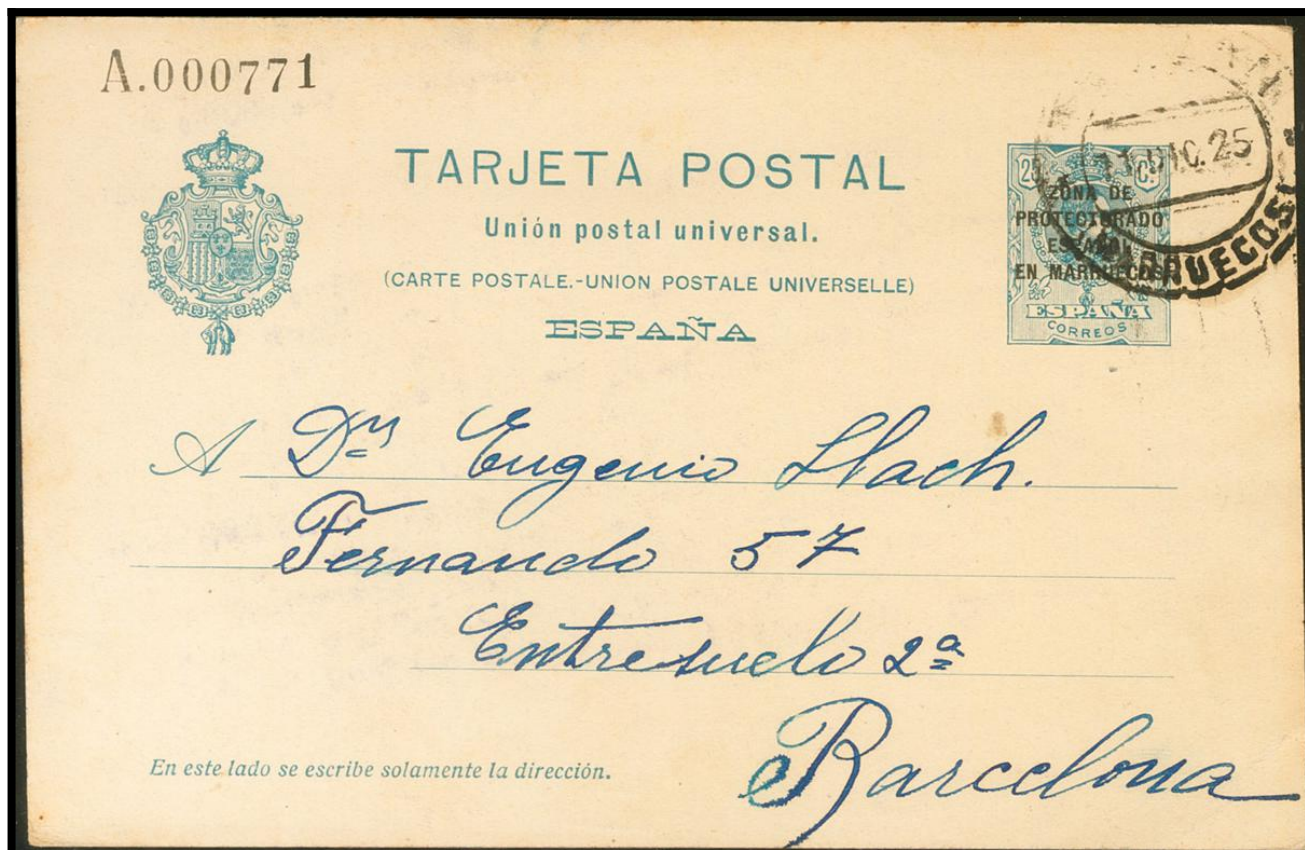 A.000771
TARJETA POSTAL
Unión postal universal.
(CARTE POSTALE.-UNION POSTALE UNIVERSELLE)
ESPAÑA
25 C.
ZONA DE
PROTECTORADO
ESPAÑOL
EN MARRUECOS
ESPAÑA
CORREOS
11 DIC. 25
MARRUECOS
A Dn Eugenio Llach.
Fernando 57
Entresuelo 2ª
Barcelona
En este lado se escribe solamente la dirección.